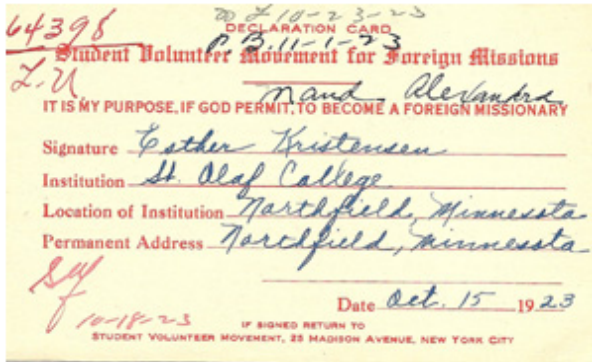 64398
L.U
DD L 10-23-23
DECLARATION CARD
P.B. 11-1-23
Student Volunteer Movement for Foreign Missions
Maud Alexandra
IT IS MY PURPOSE, IF GOD PERMIT, TO BECOME A FOREIGN MISSIONARY
Signature Esther Kristensen
Institution St. Olaf College
Location of Institution Northfield, Minnesota
Permanent Address Northfield, Minnesota
Date Oct. 15 1923
10-18-23
IF SIGNED RETURN TO
STUDENT VOLUNTEER MOVEMENT, 25 MADISON AVENUE, NEW YORK CITY